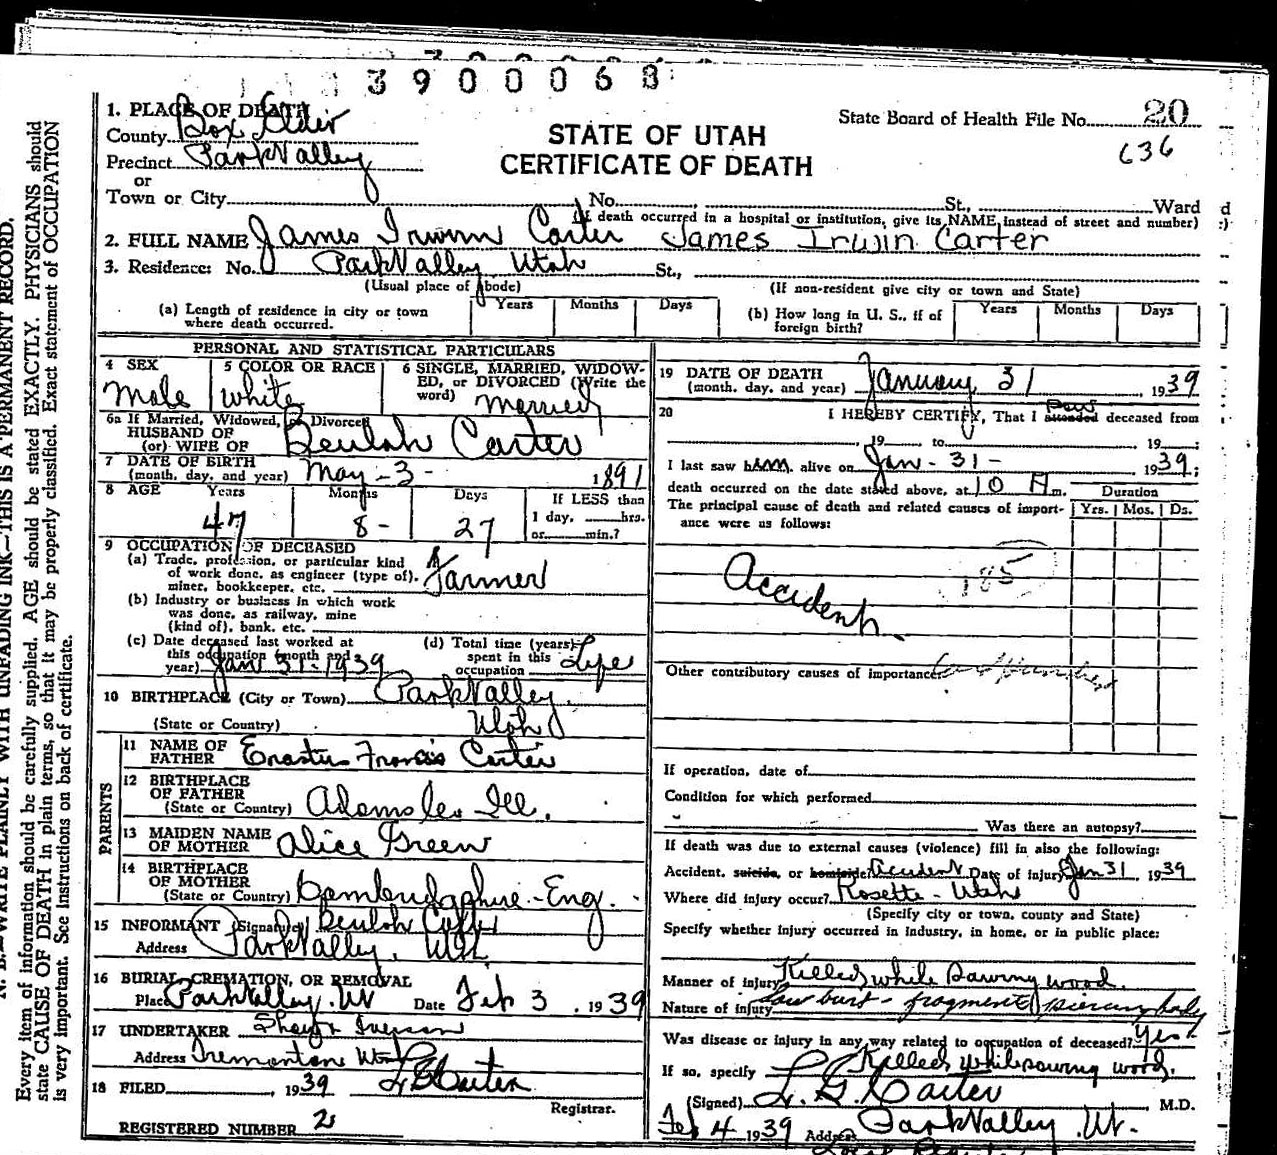 3900068
1. PLACE OF DEATH
County Box Elder
Precinct ParkValley
or
Town or City No. St., Ward
State Board of Health File No. 20
636
STATE OF UTAH
CERTIFICATE OF DEATH
(If death occurred in a hospital or institution, give its NAME instead of street and number)
2. FULL NAME James Irwin Carter James Irwin Carter
3. Residence: No. ParkValley Utah St.,
(Usual place of abode) (If non-resident give city or town and State)
(a) Length of residence in city or town where death occurred. Years Months Days
(b) How long in U. S., if of foreign birth? Years Months Days
PERSONAL AND STATISTICAL PARTICULARS
4 SEX Male
5 COLOR OR RACE white
6 SINGLE, MARRIED, WIDOWED, or DIVORCED (Write the word) Married
6a If Married, Widowed, or Divorced
HUSBAND OF
(or) WIFE OF Beulah Carter
7 DATE OF BIRTH
(month, day, and year) May - 3 - 1891
8 AGE Years Months Days If LESS than
47 8 - 27 1 day, hrs.
or min.?
9 OCCUPATION OF DECEASED
(a) Trade, profession, or particular kind
of work done, as engineer (type of),
miner, bookkeeper, etc. Farmer
(b) Industry or business in which work
was done, as railway, mine
(kind of), bank, etc.
(c) Date deceased last worked at
this occupation (month and
year) Jan 31-1939
(d) Total time (years)
spent in this
occupation Life
10 BIRTHPLACE (City or Town) ParkValley
(State or Country) Utah
PARENTS
11 NAME OF
FATHER Erastus Francis Carter
12 BIRTHPLACE
OF FATHER
(State or Country) Adams Co. Ill.
13 MAIDEN NAME
OF MOTHER Alice Green
14 BIRTHPLACE
OF MOTHER
(State or Country) Eng.
15 INFORMANT (Signature) Beulah Carter
Address ParkValley, Utah
16 BURIAL, CREMATION, OR REMOVAL
Place ParkValley. Ut Date Feb 3, 1939
17 UNDERTAKER Iverson
Address Tremonton Utah
18 FILED 1939 L G Carter
Registrar.
REGISTERED NUMBER 2
19 DATE OF DEATH
(month, day, and year) January 31 1939
20 I HEREBY CERTIFY, That I attended saw deceased from
19 to 19 ;
I last saw him alive on Jan - 31 - 1939;
death occurred on the date stated above, at 10 A m.
Duration
The principal cause of death and related causes of importance were as follows: Yrs. Mos. Ds.
Accident.
185
Other contributory causes of importance:
If operation, date of
Condition for which performed
Was there an autopsy?
If death was due to external causes (violence) fill in also the following:
Accident, suicide, or homicide Accident Date of injury Jan 31 1939
Where did injury occur? Rosette - Utah
(Specify city or town, county and State)
Specify whether injury occurred in industry, in home, or in public place:
Manner of injury Killed while Sawing wood.
Nature of injury Saw burst - fragment piercing body
Was disease or injury in any way related to occupation of deceased? Yes
If so, specify Killed while sawing wood.
(Signed) L. G. Carter M.D.
Feb 4 1939 Address ParkValley Ut.
N. B.—WRITE PLAINLY WITH UNFADING INK—THIS IS A PERMANENT RECORD.
Every item of information should be carefully supplied. AGE should be stated EXACTLY. PHYSICIANS should
state CAUSE OF DEATH in plain terms, so that it may be properly classified. Exact statement of OCCUPATION
is very important. See instructions on back of certificate.